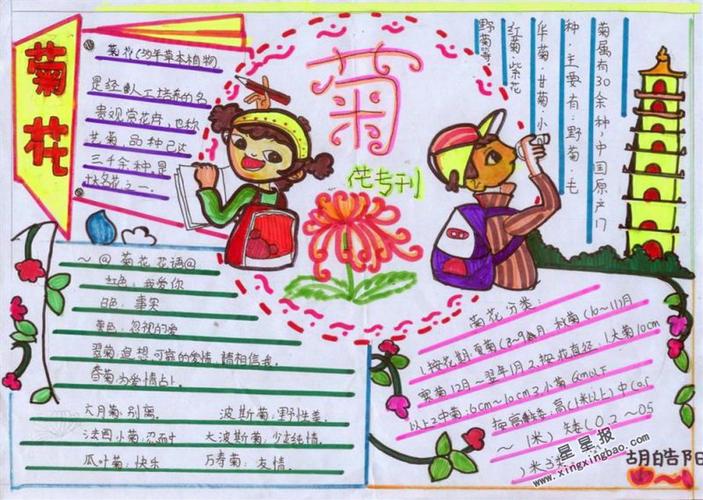 菊花
菊花(多年草本植物
是经人工培养的名
贵观赏花卉,也称
艺菊,品种已达
三千余种,是
十大名花之一。
菊
花专刊
菊属有30余种,中国原产17
种,主要有:野菊、毛
华菊、甘菊、小
红菊、紫花
野菊等
~@菊花花语@
红色:我爱你
白色:事实
黄色:忽视的爱
翠菊追想可靠的爱情,请相信我。
春菊为爱情占卜。
六月菊:别离。 波斯菊:野性美。
法国小菊:忍耐 大波斯菊:少女纯情。
瓜叶菊:快乐 万寿菊:友情。
菊花分类:
1.按花期:夏菊(8~9月 秋菊(10~11)月
寒菊12月~翌年1月 2.按花直径:1大菊10cm
以上2中菊:6cm~10cm 3.小菊6cm以下
按高触:高(1米以上)中(05
~1米)矮(0.2~05
)米 3
星星报
www.xingxingbao.com
胡皓阳